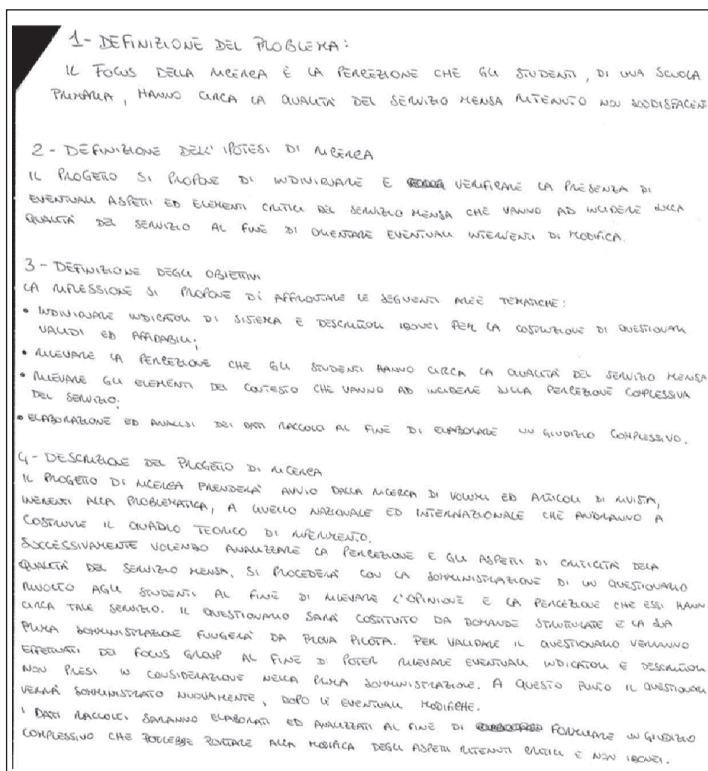 1- DEFINIZIONE DEL PROBLEMA:
IL FOCUS DELLA RICERCA È LA PERCEZIONE CHE GLI STUDENTI, DI UNA SCUOLA
PRIMARIA, HANNO CIRCA LA QUALITÀ DEL SERVIZIO MENSA RITENUTO NON SODDISFACEN
2 - DEFINIZIONE DELL' IPOTESI DI RICERCA
IL PROGETTO SI PROPONE DI INDIVIDUARE E VERIFICARE LA PRESENZA DI
EVENTUALI ASPETTI ED ELEMENTI CRITICI DEL SERVIZIO MENSA CHE VANNO AD INCIDERE SULLA
QUALITÀ DEL SERVIZIO AL FINE DI ORIENTARE EVENTUALI INTERVENTI DI MODIFICA.
3 - DEFINIZIONE DEGLI OBIETTIVI
LA RIFLESSIONE SI PROPONE DI AFFRONTARE LE SEGUENTI AREE TEMATICHE:
• INDIVIDUARE INDICATORI DI SISTEMA E DESCRITTORI IDONEI PER LA COSTRUZIONE DI QUESTIONARI
VALIDI ED AFFIDABILI;
• RILEVARE LA PERCEZIONE CHE GLI STUDENTI HANNO CIRCA LA QUALITÀ DEL SERVIZIO MENSA
• RILEVARE GLI ELEMENTI DEL CONTESTO CHE VANNO AD INCIDERE SULLA PERCEZIONE COMPLESSIVA
DEL SERVIZIO;
• ELABORAZIONE ED ANALISI DEI DATI RACCOLTI AL FINE DI ELABORARE UN GIUDIZIO COMPLESSIVO.
4 - DESCRIZIONE DEL PROGETTO DI RICERCA
IL PROGETTO DI RICERCA PRENDERÀ AVVIO DALLA RICERCA DI VOLUMI ED ARTICOLI DI RIVISTA,
INERENTI ALLA PROBLEMATICA, A LIVELLO NAZIONALE ED INTERNAZIONALE CHE ANDRANNO A
COSTRUIRE IL QUADRO TEORICO DI RIFERIMENTO.
SUCCESSIVAMENTE VOLENDO ANALIZZARE LA PERCEZIONE E GLI ASPETTI DI CRITICITÀ DELLA
QUALITÀ DEL SERVIZIO MENSA, SI PROCEDERÀ CON LA SOMMINISTRAZIONE DI UN QUESTIONARIO
RIVOLTO AGLI STUDENTI AL FINE DI RILEVARE L'OPINIONE E LA PERCEZIONE CHE ESSI HANN
CIRCA TALE SERVIZIO. IL QUESTIONARIO SARÀ COSTITUITO DA DOMANDE STRUTTURATE E LA SUA
PRIMA SOMMINISTRAZIONE FUNGERÀ DA PROVA PILOTA. PER VALIDARE IL QUESTIONARIO VERRANNO
EFFETTUATI DEI FOCUS GROUP AL FINE DI POTER RILEVARE EVENTUALI INDICATORI E DESCRITTORI
NON PRESI IN CONSIDERAZIONE NELLA PRIMA SOMMINISTRAZIONE. A QUESTO PUNTO IL QUESTIONARI
VERRÀ SOMMINISTRATO NUOVAMENTE, DOPO LE EVENTUALI MODIFICHE.
I DATI RACCOLTI SARANNO ELABORATI ED ANALIZZATI AL FINE DI FORMULARE UN GIUDIZIO
COMPLESSIVO CHE POTREBBE PORTARE ALLA MODIFICA DEGLI ASPETTI RITENUTI CRITICI E NON IDONEI.